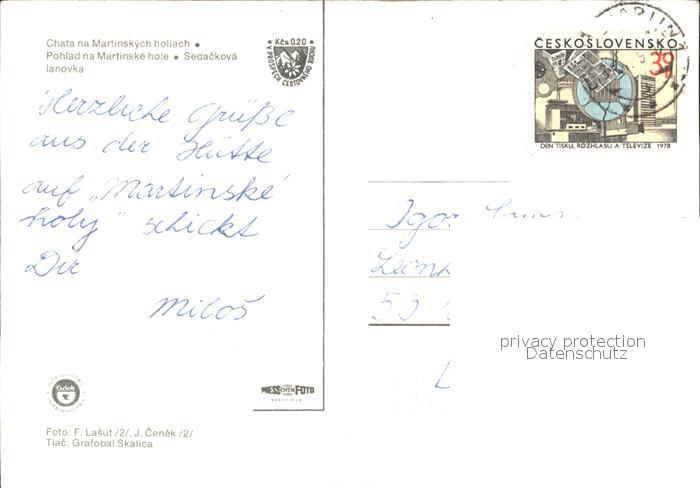 Chata na Martinských holiach •
Pohľad na Martinské hole • Sedačková
lanovka
Kčs 0,20
V PROSPECH CESTOVNÉHO RUCHU
ČESKOSLOVENSKO
DEN TISKU, ROZHLASU A TELEVIZE 1978
Herzliche Grüße
aus der Hütte
auf „Martinské
holy" schickt
Dir
Miloš
Igor
53
privacy protection
Datenschutz
čedok
PRESSFOTO
BRATISLAVA
Foto: F. Lašut /2/, J. Čeněk /2/
Tlač: Grafobal Skalica